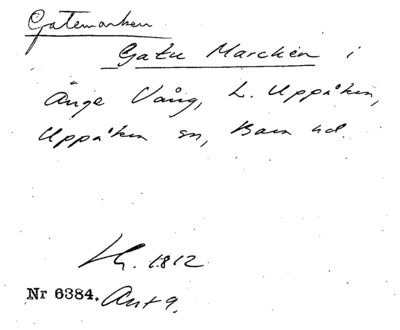 Gatemarken
Gatu Marcken i
Änge Vång, L. Uppåkra,
Uppåkra sn, Bara hd.
Lh. 1812
Nr 6384. Ant 9.